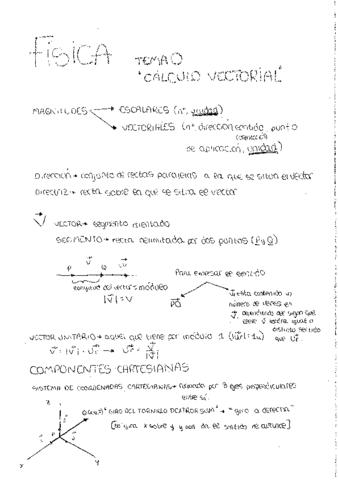 FÍSICA
TEMA 0
"CÁLCULO VECTORIAL"
MAGNITUDES → ESCALARES (nº, unidad)
→ VECTORIALES (nº, dirección, sentido, punto
de aplicación, unidad)
Dirección → conjunto de rectas paralelas a la que se sitúa el vector
Directriz → recta sobre la que se sitúa el vector
V VECTOR → segmento orientado
SEGMENTO → recta delimitada por dos puntos (P y Q)
P Q
longitud del vector = módulo
|V| = V
Para expresar el sentido
PQ
contenido un
número de veces en
VECTOR UNITARIO → aquel que tiene por módulo 1
COMPONENTES CARTESIANAS
SISTEMA DE COORDENADAS CARTESIANAS → formado por 3 ejes perpendiculares
entre sí.
"GIRO DEL TORNILLO DEXTRORSUM" → "giro a derecha"
[se gira x sobre y y nos da el sentido resultante]
z
x
y